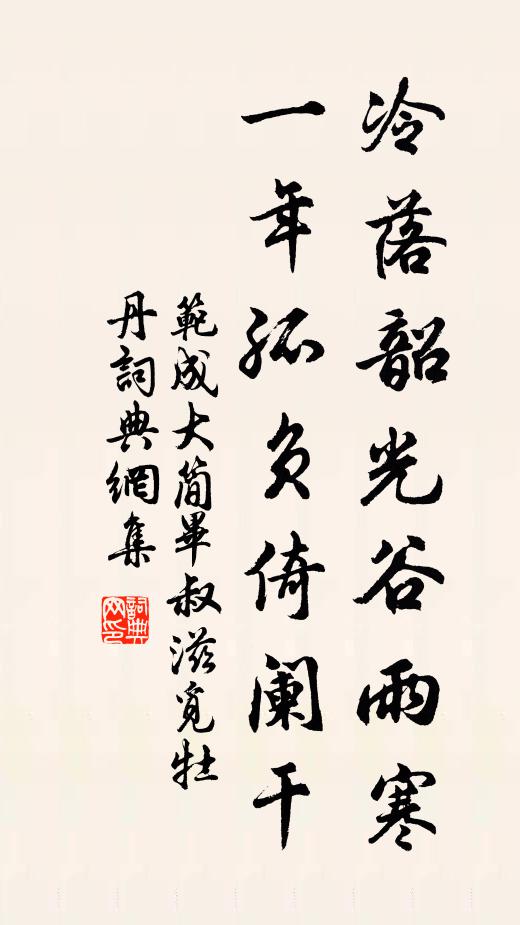 冷落韶光谷雨寒
一年孤负倚阑干
範成大簡畢叔滋覓牡
丹詞典網集
詞典
网印